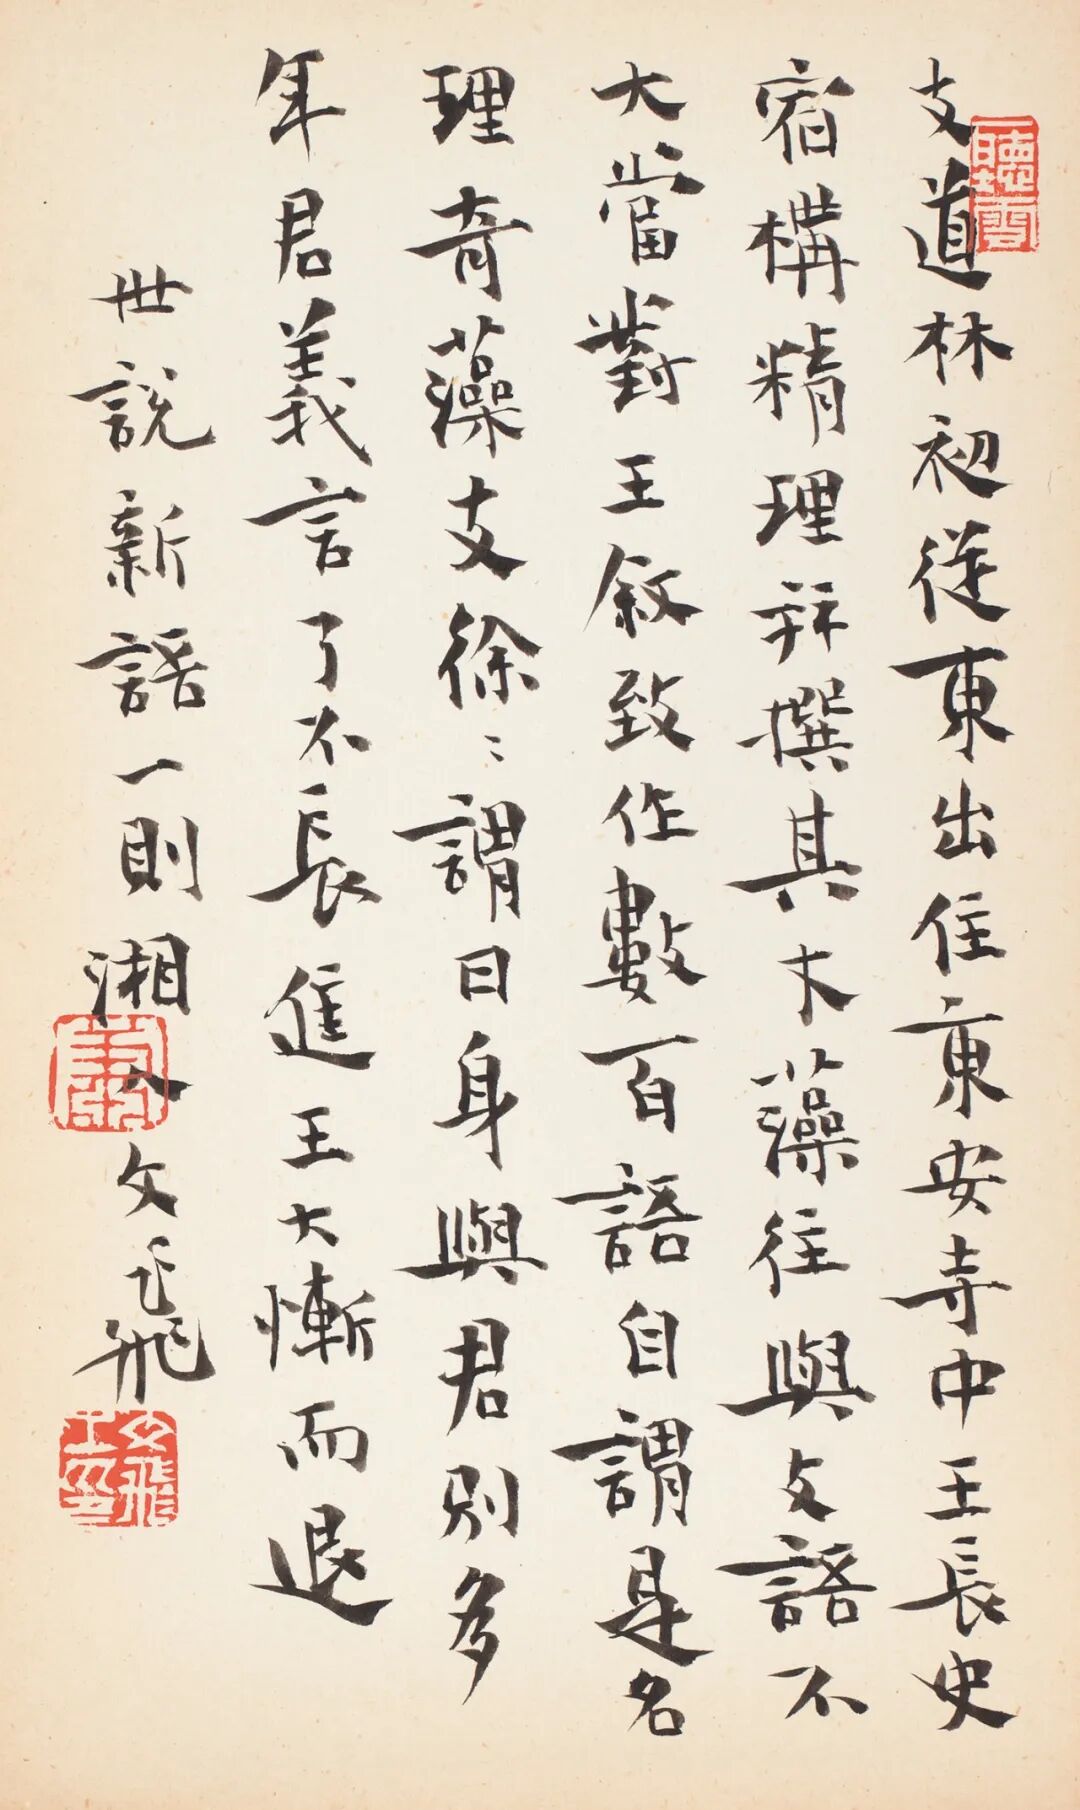 支道林初從東出住東安寺中王長史
宿構精理并撰其才藻往與支語不
大當對王叙致作數百語自謂是名
理奇藻支徐〻謂曰身與君別多
年君義言了不長進王大慚而退
世說新語一則湘人文飛
聽雲